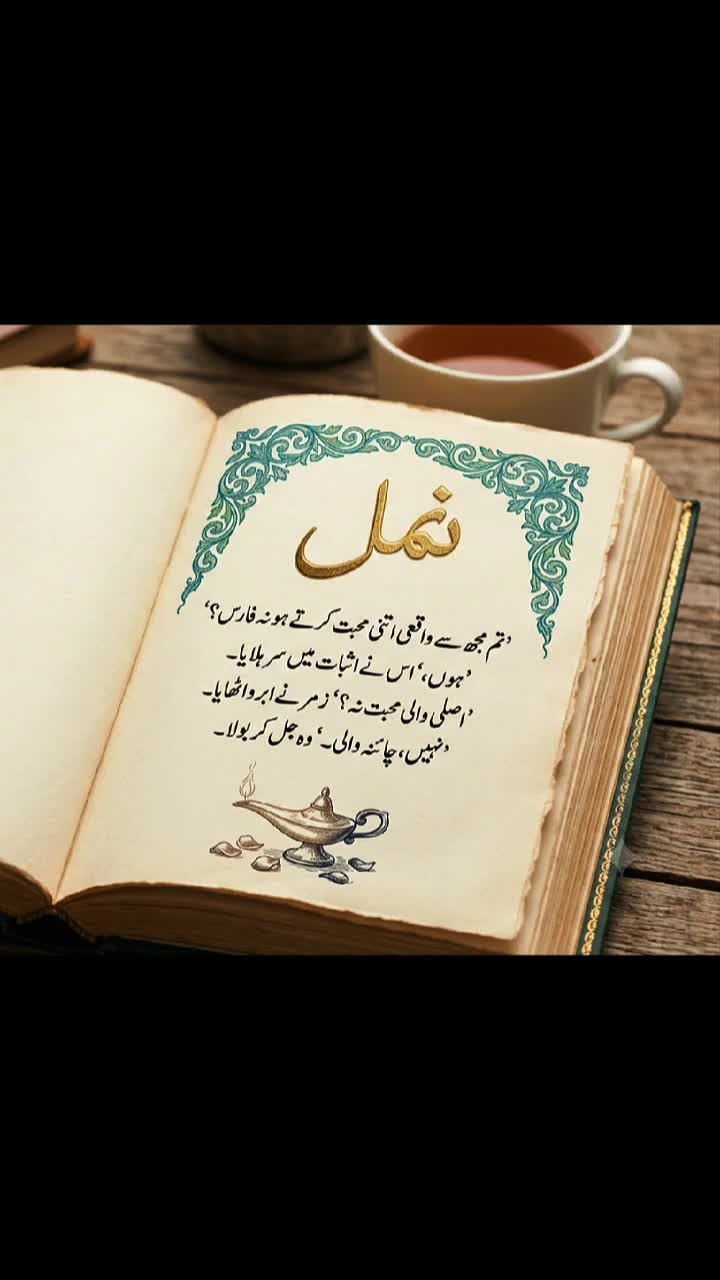 نمل
’تم مجھ سے واقعی اتنی محبت کرتے ہو نہ فارس؟‘
’ہوں،‘ اس نے اثبات میں سر ہلایا۔
’اصلی والی محبت نہ؟‘ زمر نے ابرو اٹھایا۔
’نہیں، چائنہ والی۔‘ وہ جل کر بولا۔